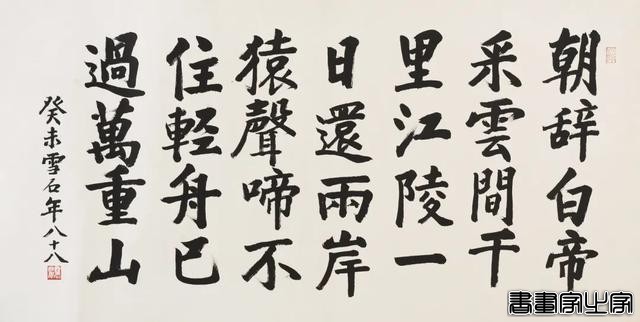 朝辞白帝
采雲間千
里江陵一
日還兩岸
猿聲啼不
住輕舟已
過萬重山
癸未雪石年八十八
書畫家之家